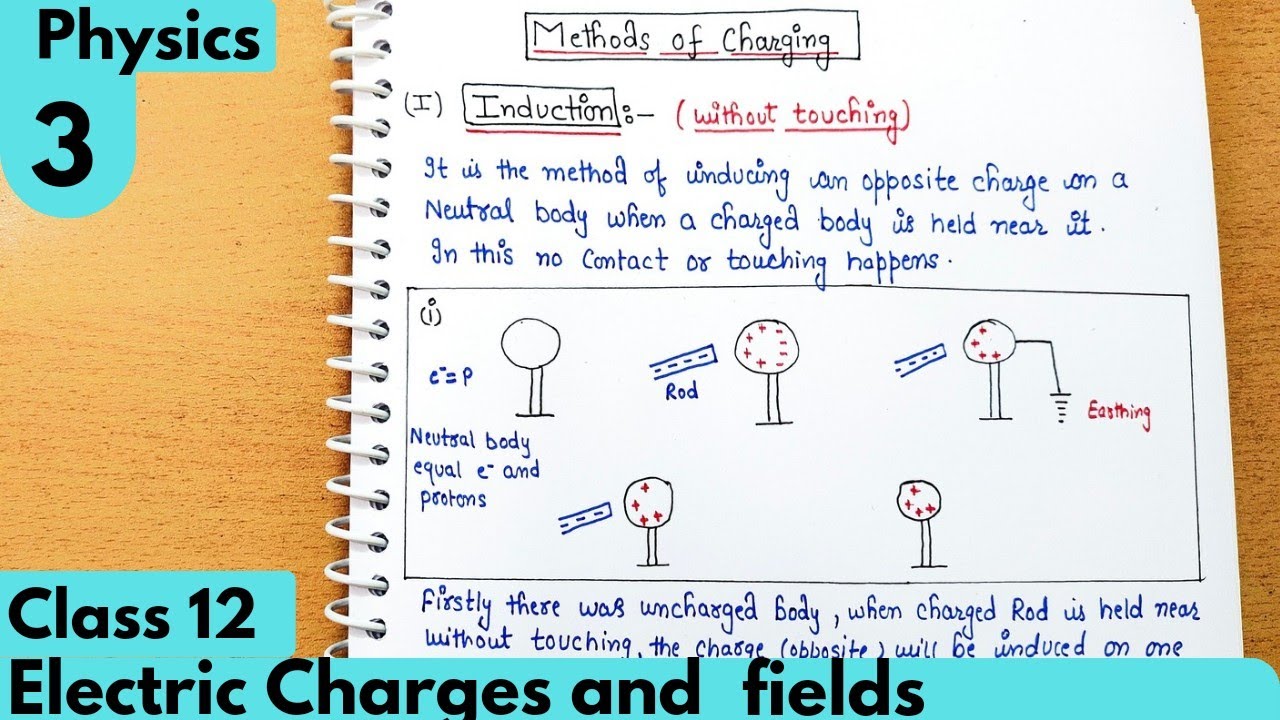 Physics
3
Methods of Charging
(I) Induction:- (without touching)
It is the method of inducing an opposite charge on a
Neutral body when a charged body is held near it.
In this no Contact or touching happens.
(i)
e⁻=p
Neutral body
equal e⁻ and
protons
- - -
Rod
+ + + + +
- - - -
- - -
+ + + +
Earthing
- - -
+ + + +
+ + + +
Firstly there was uncharged body, when charged Rod is held near
without touching, the charge (opposite) will be induced on one
Class 12
Electric Charges and fields